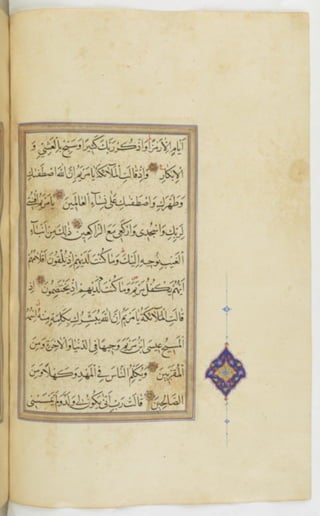 أَيَّامٍ إِلَّا رَمْزًا وَاذْكُرْ رَبَّكَ كَثِيرًا وَسَبِّحْ بِالْعَشِيِّ وَ
الْإِبْكَارِ وَإِذْ قَالَتِ الْمَلَائِكَةُ يَا مَرْيَمُ إِنَّ اللَّهَ اصْطَفَيكِ
وَطَهَّرَكِ وَاصْطَفَيكِ عَلَى نِسَاءِ الْعَالَمِينَ يَا مَرْيَمُ اقْنُتِي
لِرَبِّكِ وَاسْجُدِي وَارْكَعِي مَعَ الرَّاكِعِينَ ذَلِكَ مِنْ أَنْبَاءِ
الْغَيْبِ نُوحِيهِ إِلَيْكَ وَمَا كُنْتَ لَدَيْهِمْ إِذْ يُلْقُونَ أَقْلَامَهُمْ
أَيُّهُمْ يَكْفُلُ مَرْيَمَ وَمَا كُنْتَ لَدَيْهِمْ إِذْ يَخْتَصِمُونَ إِذْ
قَالَتِ الْمَلَائِكَةُ يَا مَرْيَمُ إِنَّ اللَّهَ يُبَشِّرُكِ بِكَلِمَةٍ مِنْهُ اسْمُهُ
الْمَسِيحُ عِيسَى ابْنُ مَرْيَمَ وَجِيهًا فِي الدُّنْيَا وَالْآخِرَةِ وَمِنَ
الْمُقَرَّبِينَ وَيُكَلِّمُ النَّاسَ فِي الْمَهْدِ وَكَهْلًا وَمِنَ
الصَّالِحِينَ قَالَتْ رَبِّ أَنَّى يَكُونُ لِي وَلَدٌ وَلَمْ يَمْسَسْنِي